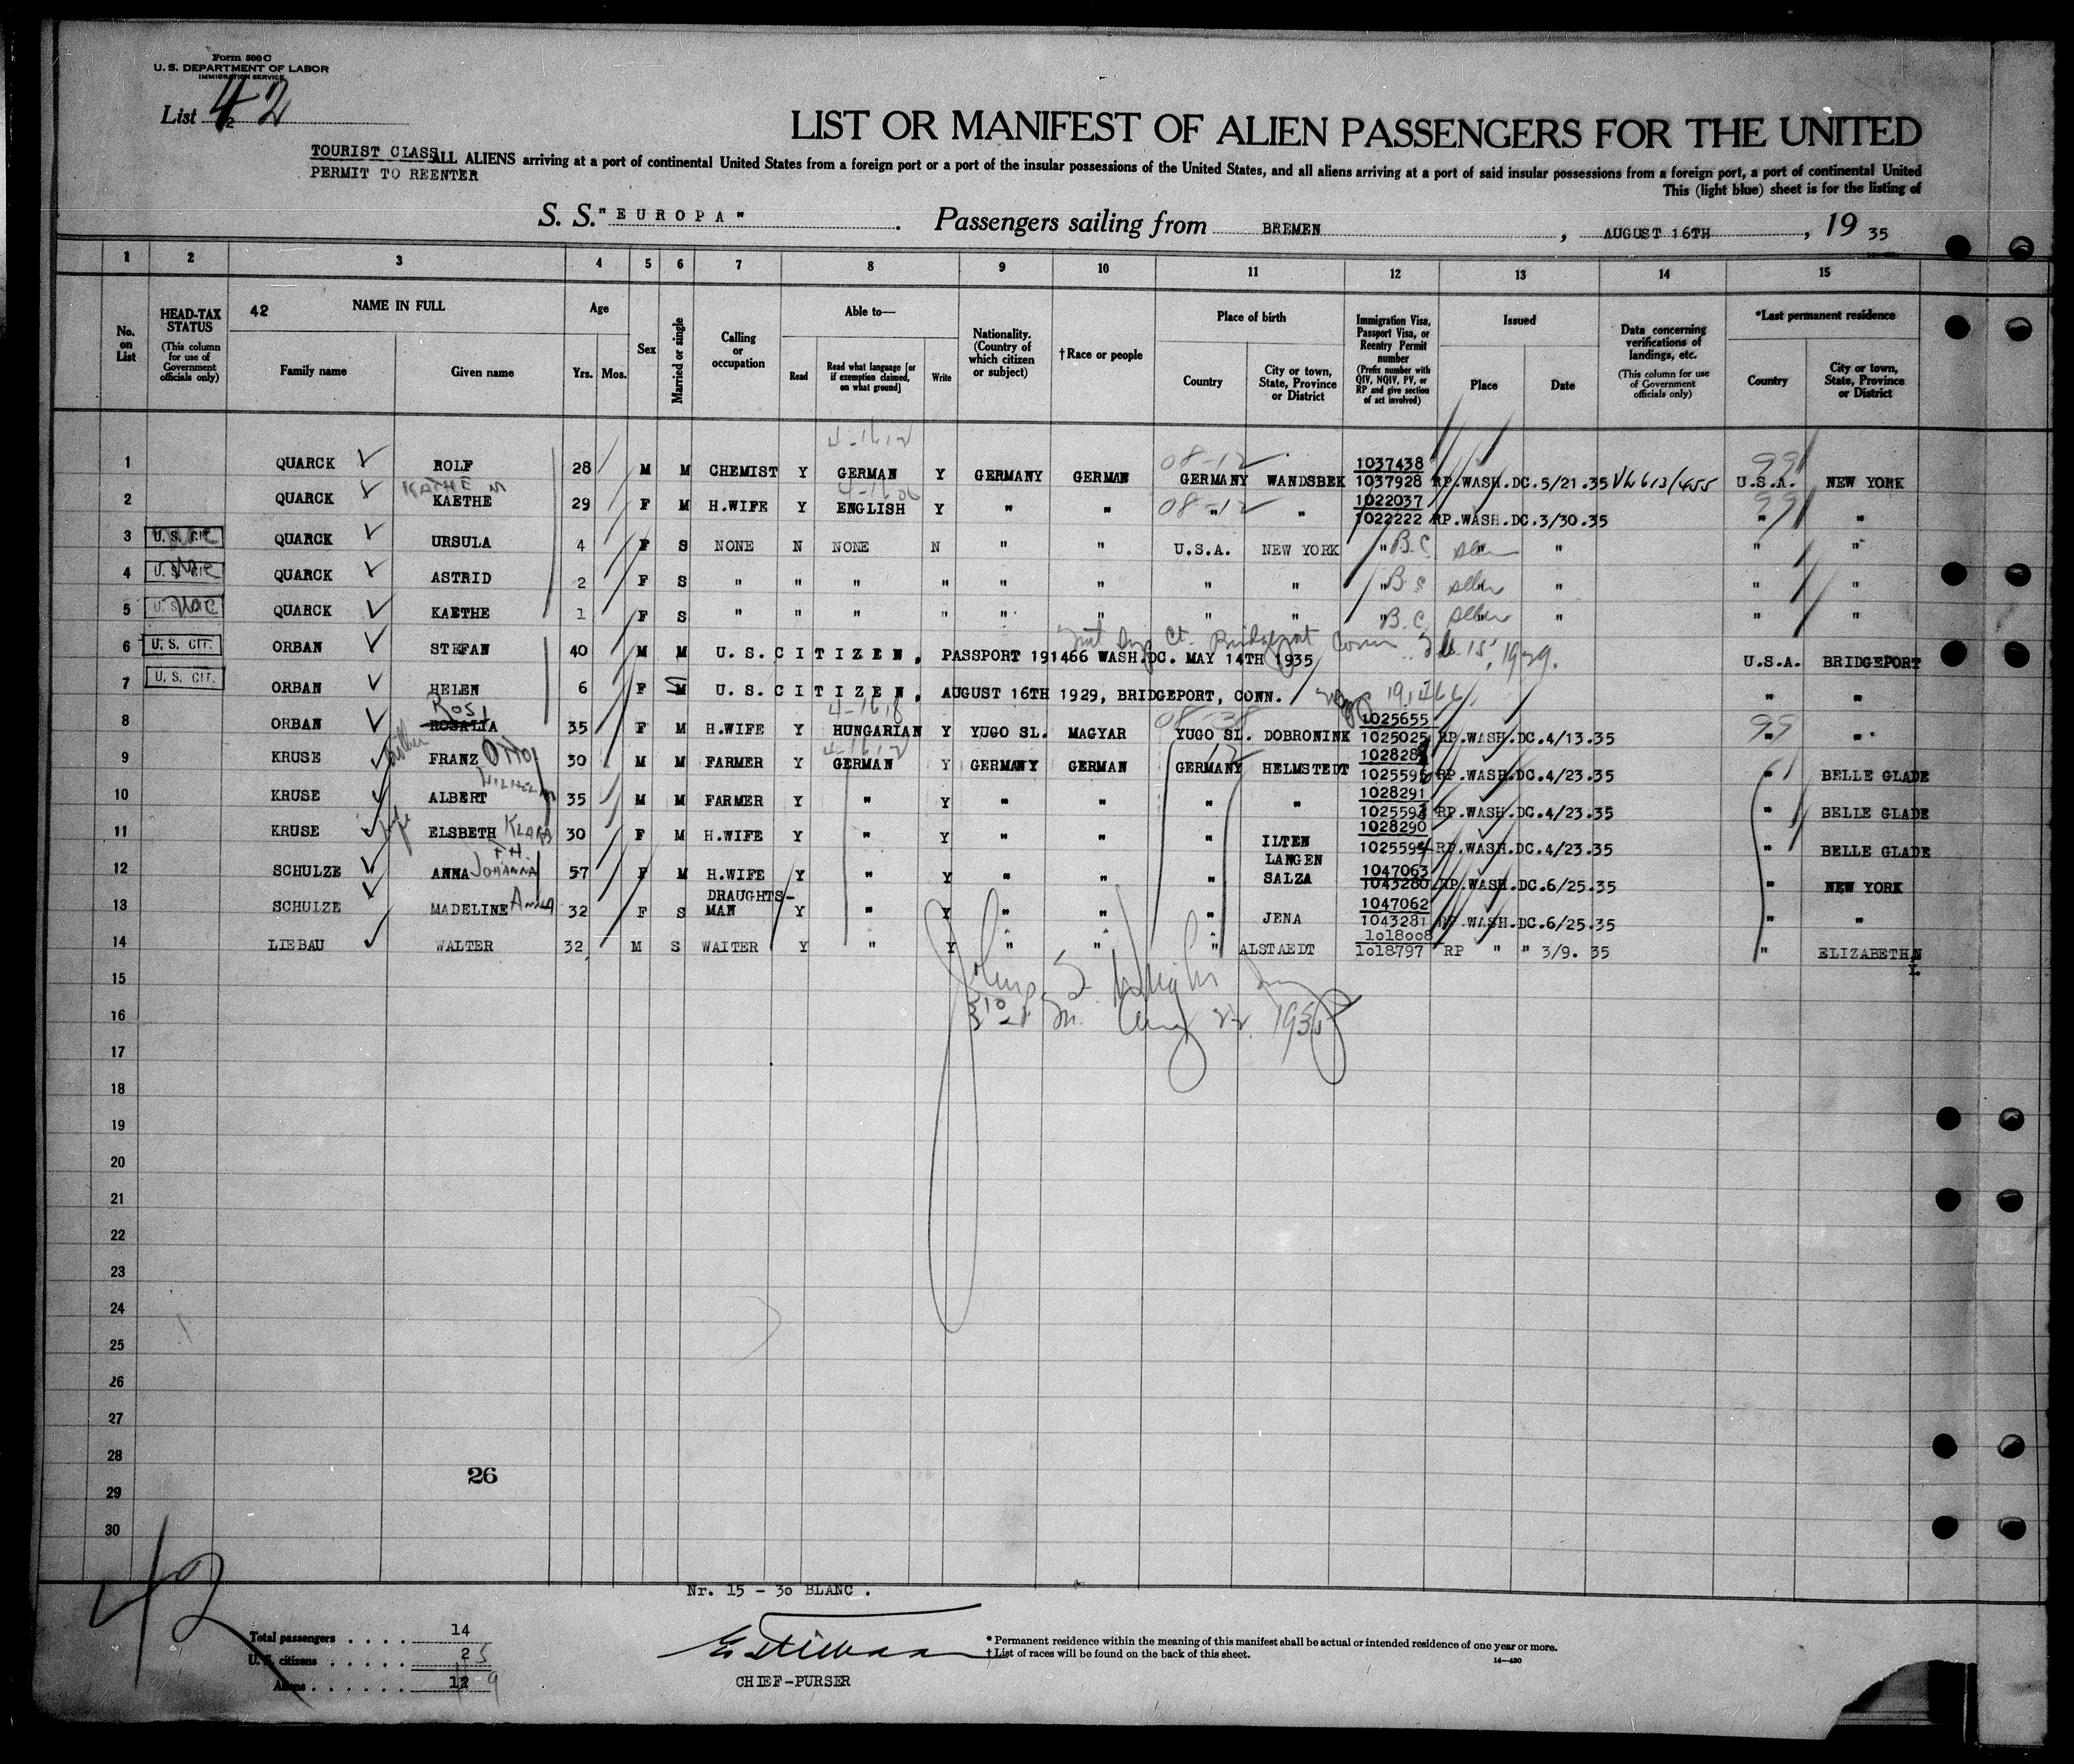 Form 500 C
U. S. DEPARTMENT OF LABOR
IMMIGRATION SERVICE
List 42
LIST OR MANIFEST OF ALIEN PASSENGERS FOR THE UNITED
TOURIST CLASS
PERMIT TO REENTER
ALL ALIENS arriving at a port of continental United States from a foreign port or a port of the insular possessions of the United States, and all aliens arriving at a port of said insular possessions from a foreign port, a port of continental United
This (light blue) sheet is for the listing of
S. S. "EUROPA". Passengers sailing from BREMEN, AUGUST 16TH, 19 35
1 2 3 4 5 6 7 8 9 10 11 12 13 14 15
No. on List
HEAD-TAX STATUS
(This column for use of Government officials only)
42 NAME IN FULL
Family name
Given name
Age
Yrs. Mos.
Sex
Married or single
Calling or occupation
Able to—
Read
Read what language [or if exemption claimed, on what ground]
Write
Nationality. (Country of which citizen or subject)
† Race or people
Place of birth
Country
City or town, State, Province or District
Immigration Visa, Passport Visa, or Reentry Permit number
(Prefix number with QIV, NQIV, PV, or RP and give section of act involved)
Issued
Place
Date
Data concerning verifications of landings, etc.
(This column for use of Government officials only)
*Last permanent residence
Country
City or town, State, Province or District
4-1612
08-12 1037438 99
1 QUARCK ROLF 28 M M CHEMIST Y GERMAN Y GERMANY GERMAN GERMANY WANDSBEK 1037928 RP.WASH.DC.5/21.35 U.S.A. NEW YORK
KATHE M 08-12 1022037 99
2 QUARCK KAETHE 29 F M H.WIFE Y ENGLISH Y " " " " 1022222 RP.WASH.DC.3/30.35 " "
3 U. S. CIT. QUARCK URSULA 4 F S NONE N NONE N " " U.S.A. NEW YORK " B.C. " " "
4 U. S. CIT. QUARCK ASTRID 2 F S " " " " " " " " " " " "
5 U. S. CIT. QUARCK KAETHE 1 F S " " " " " " " " " B.C. " " "
6 U. S. CIT. ORBAN STEFAN 40 M M U. S. CITIZEN, PASSPORT 191466 WASH.DC. MAY 14TH 1935 U.S.A. BRIDGEPORT
7 U. S. CIT. ORBAN HELEN 6 F S U. S. CITIZEN, AUGUST 16TH 1929, BRIDGEPORT, CONN. " "
ROSI 4-1618 08-38 1025655 99
8 ORBAN ROSALIA 35 F M H.WIFE Y HUNGARIAN Y YUGO SL. MAGYAR YUGO SL. DOBRONINK 1025025 RP.WASH.DC.4/13.35 " "
4-1612
9 KRUSE FRANZ OTTO 30 M M FARMER Y GERMAN Y GERMANY GERMAN GERMANY HELMSTEDT RP.WASH.DC.4/23.35 " BELLE GLADE
WILHELM 1028291
10 KRUSE ALBERT 35 M M FARMER Y " Y " " " " RP.WASH.DC.4/23.35 " BELLE GLADE
wife 1028290
11 KRUSE ELSBETH KLARA 30 F M H.WIFE Y " Y " " " ILTEN RP.WASH.DC.4/23.35 " BELLE GLADE
LANGEN 1047063
12 SCHULZE ANNA JOHANNA 57 F M H.WIFE Y " Y " " " SALZA 1043280 RP.WASH.DC.6/25.35 " NEW YORK
DRAUGHTS- 1047062
13 SCHULZE MADELINE ANNA 32 F S MAN Y " Y " " " JENA 1043281 RP.WASH.DC.6/25.35 " "
1018008
14 LIEBAU WALTER 32 M S WAITER Y " Y " " " ALSTAEDT 1018797 RP " " 3/9. 35 " ELIZABETH N
15
16
17
18
19
20
21
22
23
24
25
26
27
28
26
29
30
42
Nr. 15 - 30 BLANC.
Total passengers . . . . 14
U. S. citizens . . . . . 2 5
Aliens . . . . . . 12 9
CHIEF-PURSER
* Permanent residence within the meaning of this manifest shall be actual or intended residence of one year or more.
† List of races will be found on the back of this sheet.
14—430